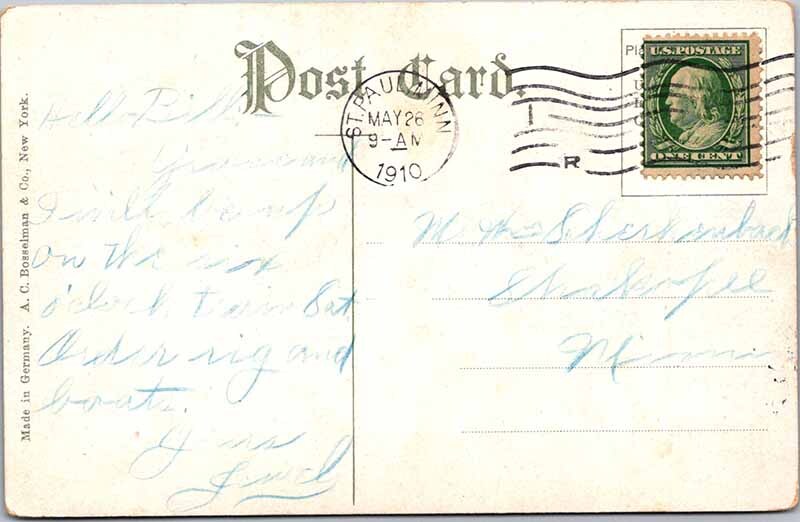 Post Card.
ST. PAUL, MINN
MAY 26
9-AM
1910
R
Pla
U.S. POSTAGE
ONE CENT
Made in Germany. A. C. Bosselman & Co., New York.
Hello Bill
and
I will be up
on the six
o'clock train Sat
Order rig and
boat.
Yours
M Wm
Shakopee
Minn